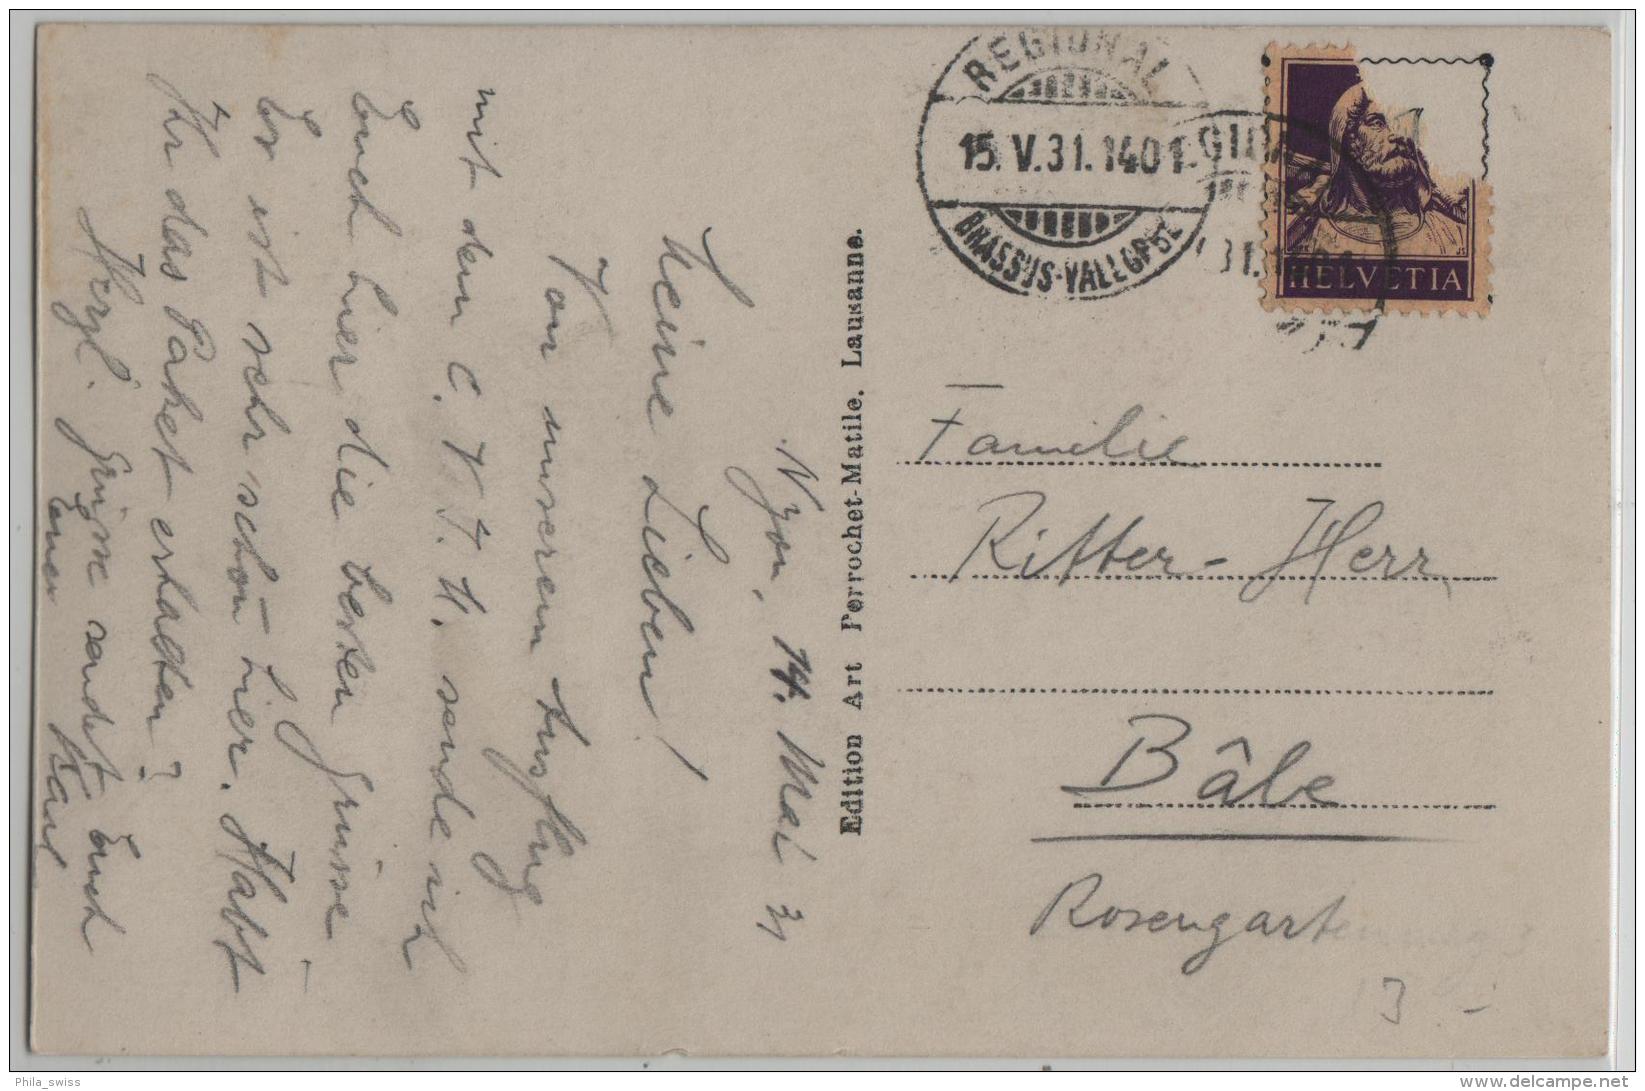 Nyon, 14. Mai 31
Meine Lieben!
Von unserem Ausflug
mit dem C. V. J. M. sende ich
Euch hier die besten Grüsse
Es ist sehr schön hier. Habt
Ihr das Paket erhalten?
Herzl. Grüsse sendet Euch
Euer Karl
Edition Art Perrochet-Matile, Lausanne.
REGIONAL
15.V.31.1401
BRASSUS-VALLORBE
HELVETIA
Familie
Ritter-Herr
Bâle
Rosengartenweg 3
3.-
Phila_swiss
delcampe.net